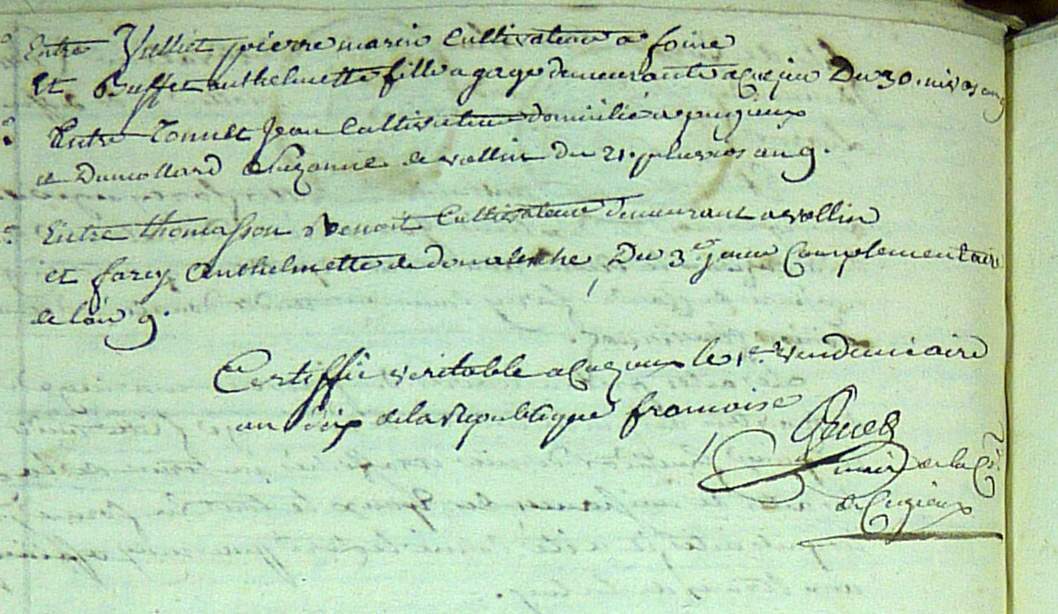 Entre Julliet pierre marin Cultivateur a foine
Et Buffet anthelmette fille a gage demeurante a Cuzieu Du 30. nivos an 9
Entre Tonnet Jean Cultivateur domicilié a pugieux
et Dumollard Suzanne de vollin du 21. pluvios an 9.
Entre thomasson Benoit Cultivateur demeurant a vollin
et farcy Anthelmette de Du 3e. jour Complementaire
de l'an 9.
Certiffié veritable a Cuzieux le 1er. vendemiaire
an dix de la Republique francoise
maire de la Cne
de Cuzieux